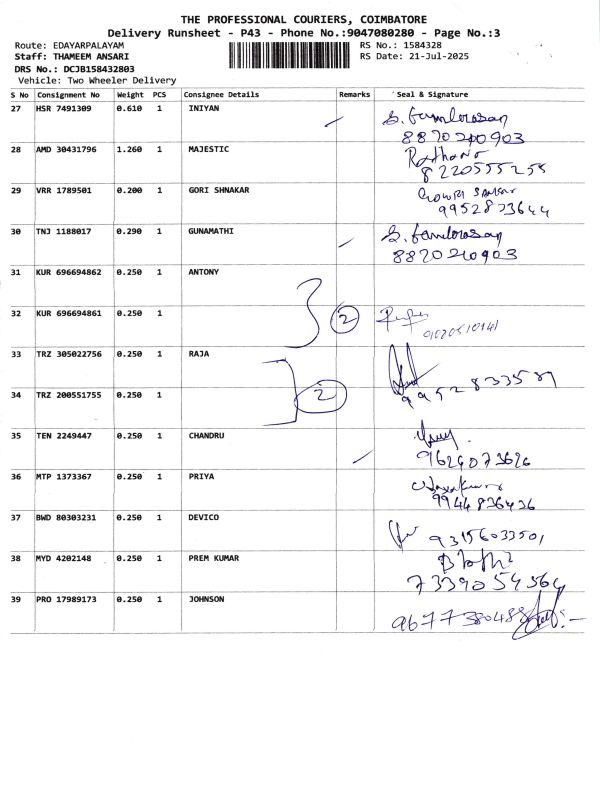 THE PROFESSIONAL COURIERS, COIMBATORE
Delivery Runsheet - P43 - Phone No.:9047080280 - Page No.:3
Route: EDAYARPALAYAM RS No.: 1584328
Staff: THAMEEM ANSARI RS Date: 21-Jul-2025
DRS No.: DCJB158432803
Vehicle: Two Wheeler Delivery
S No Consignment No Weight PCS Consignee Details Remarks Seal & Signature
27 HSR 7491309 0.610 1 INIYAN
8870240903
28 AMD 30431796 1.260 1 MAJESTIC
8220555255
29 VRR 1789501 0.200 1 GORI SHNAKAR
9952873644
30 TNJ 1188017 0.290 1 GUNAMATHI
8870240903
31 KUR 696694862 0.250 1 ANTONY
32 KUR 696694861 0.250 1 2
33 TRZ 305022756 0.250 1 RAJA
34 TRZ 200551755 0.250 1 2
35 TEN 2249447 0.250 1 CHANDRU
9629073626
36 MTP 1373367 0.250 1 PRIYA
9944836426
37 BWD 80303231 0.250 1 DEVICO
93156033501
38 MYD 4202148 0.250 1 PREM KUMAR
7339054564
39 PRO 17989173 0.250 1 JOHNSON